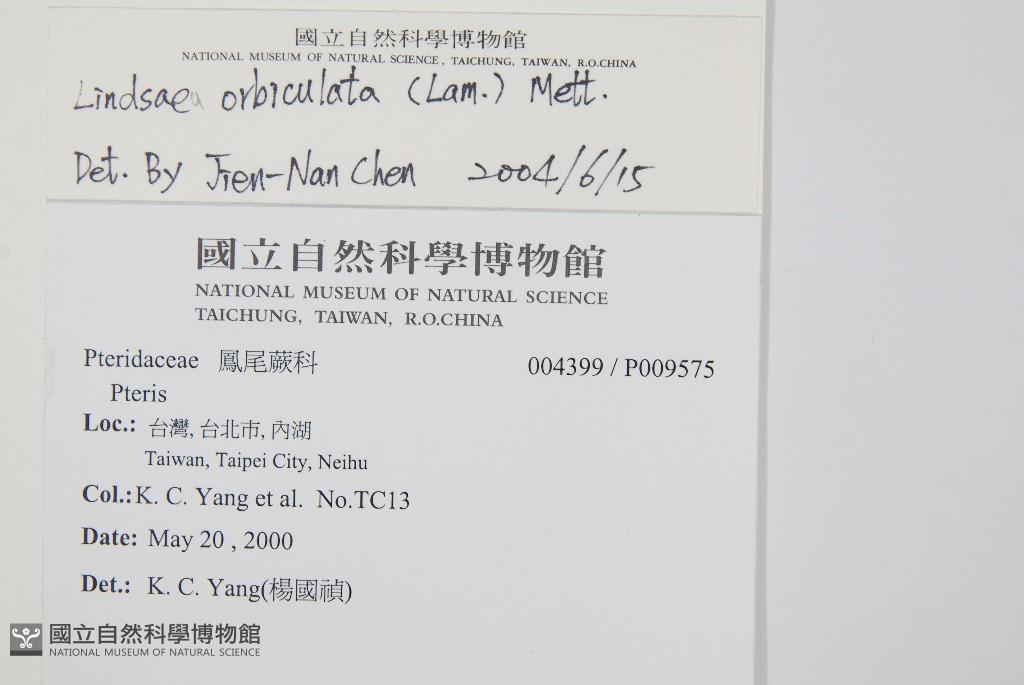 國立自然科學博物館
NATIONAL MUSEUM OF NATURAL SCIENCE, TAICHUNG, TAIWAN, R.O.CHINA
Lindsaea orbiculata (Lam.) Mett.
Det. By Jien-Nan Chen 2004/6/15
國立自然科學博物館
NATIONAL MUSEUM OF NATURAL SCIENCE
TAICHUNG, TAIWAN, R.O.CHINA
Pteridaceae 鳳尾蕨科 004399 / P009575
Pteris
Loc.: 台灣, 台北市, 內湖
Taiwan, Taipei City, Neihu
Col.: K. C. Yang et al. No.TC13
Date: May 20 , 2000
Det.: K. C. Yang(楊國禎)
國立自然科學博物館
NATIONAL MUSEUM OF NATURAL SCIENCE